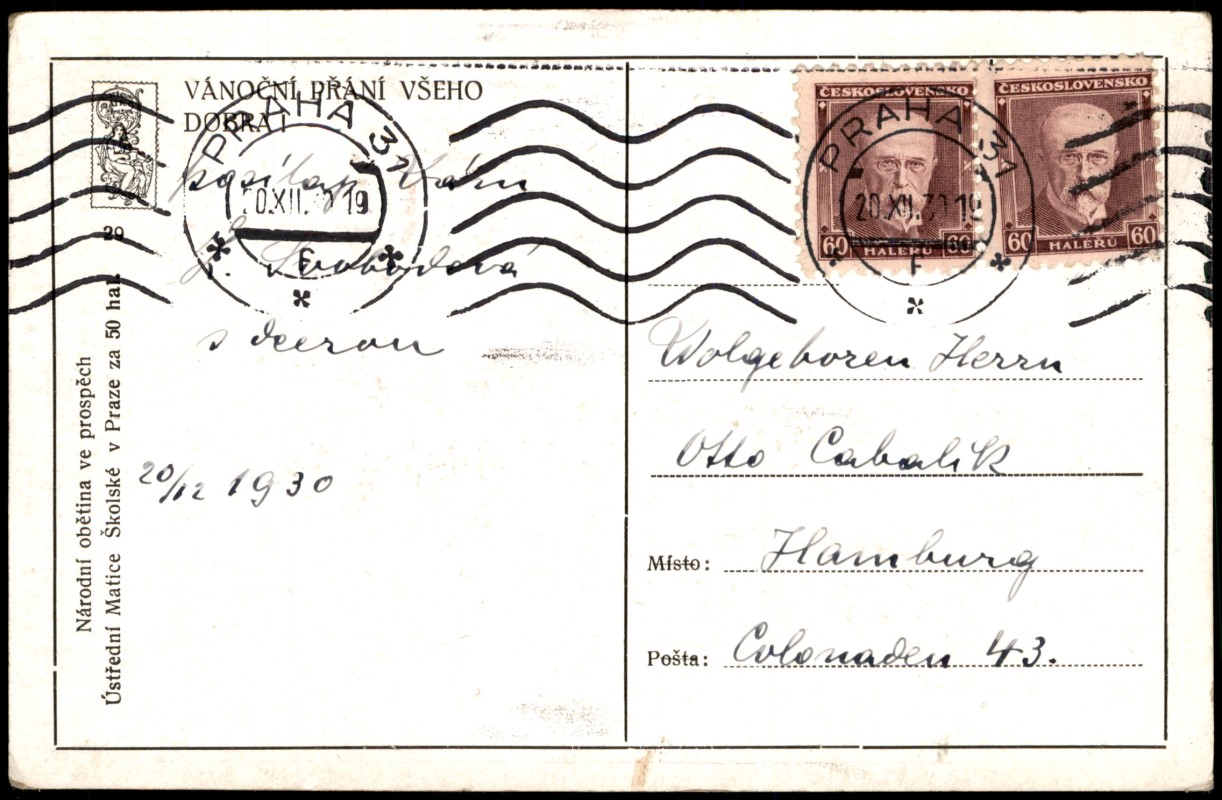 VÁNOČNÍ PŘÁNÍ VŠEHO
DOBRA!
posílají Vám
Svobodová
s dcerou
20/12 1930
29
Národní obětina ve prospěch
Ústřední Matice Školské v Praze za 50 hal.
PRAHA 31
20.XII.30 19
ČESKOSLOVENSKO
60 HALÉRŮ 60
ČESKOSLOVENSKO
60 HALÉRŮ 60
PRAHA 31
20.XII.30 19
Wolgeboren Herrn
Otto Cabalik
Místo: Hamburg
Pošta: Colonaden 43.